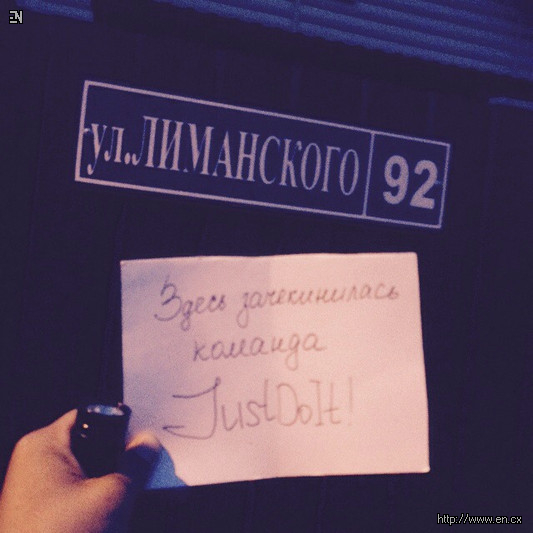 EN
ул.ЛИМАНСКОГО 92
Здесь зачекинилась
команда
JustDoIt!
http://www.en.cx